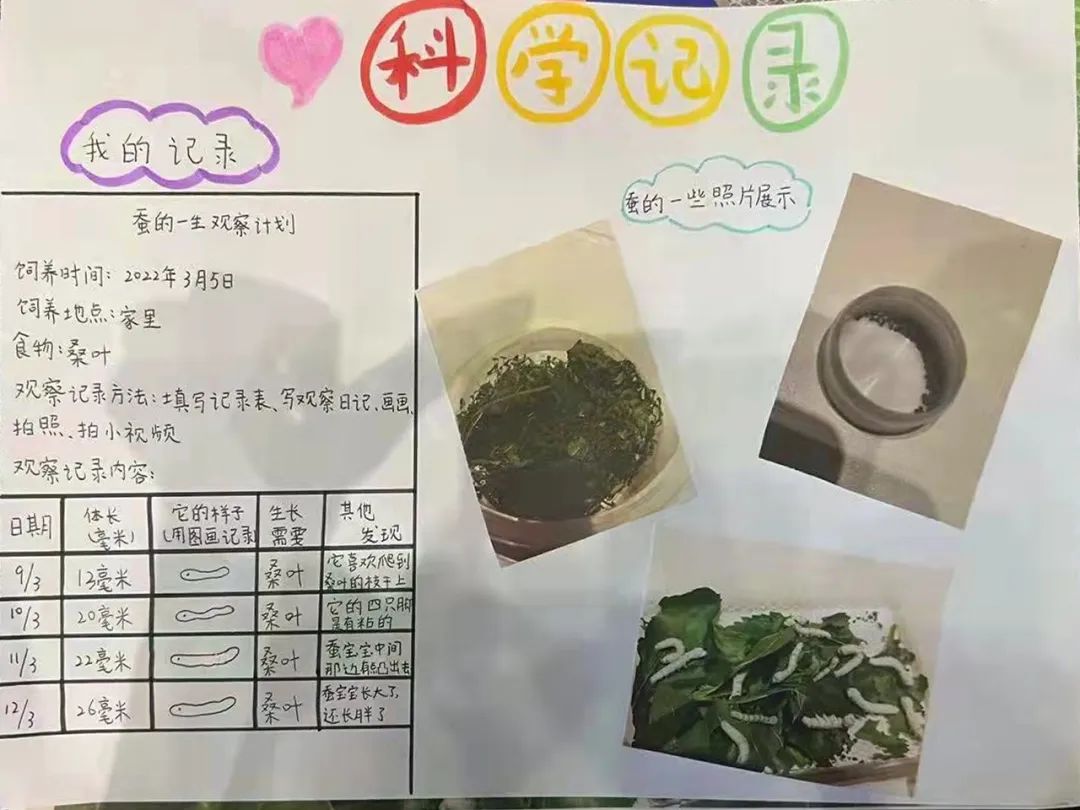 科学记录
我的记录
蚕的一生观察计划
饲养时间：2022年3月5日
饲养地点：家里
食物：桑叶
观察记录方法：填写记录表、写观察日记、画画、
拍照、拍小视频
观察记录内容：
日期 体长（毫米） 它的样子（用图画记录） 生长需要 其他发现
9/3 13毫米 桑叶 它喜欢爬到桑叶的枝干上
10/3 20毫米 桑叶 它的四只脚是有粘的
11/3 22毫米 桑叶 蚕宝宝中间那边能凸出去
12/3 26毫米 桑叶 蚕宝宝长大了，还长胖了
蚕的一些照片展示